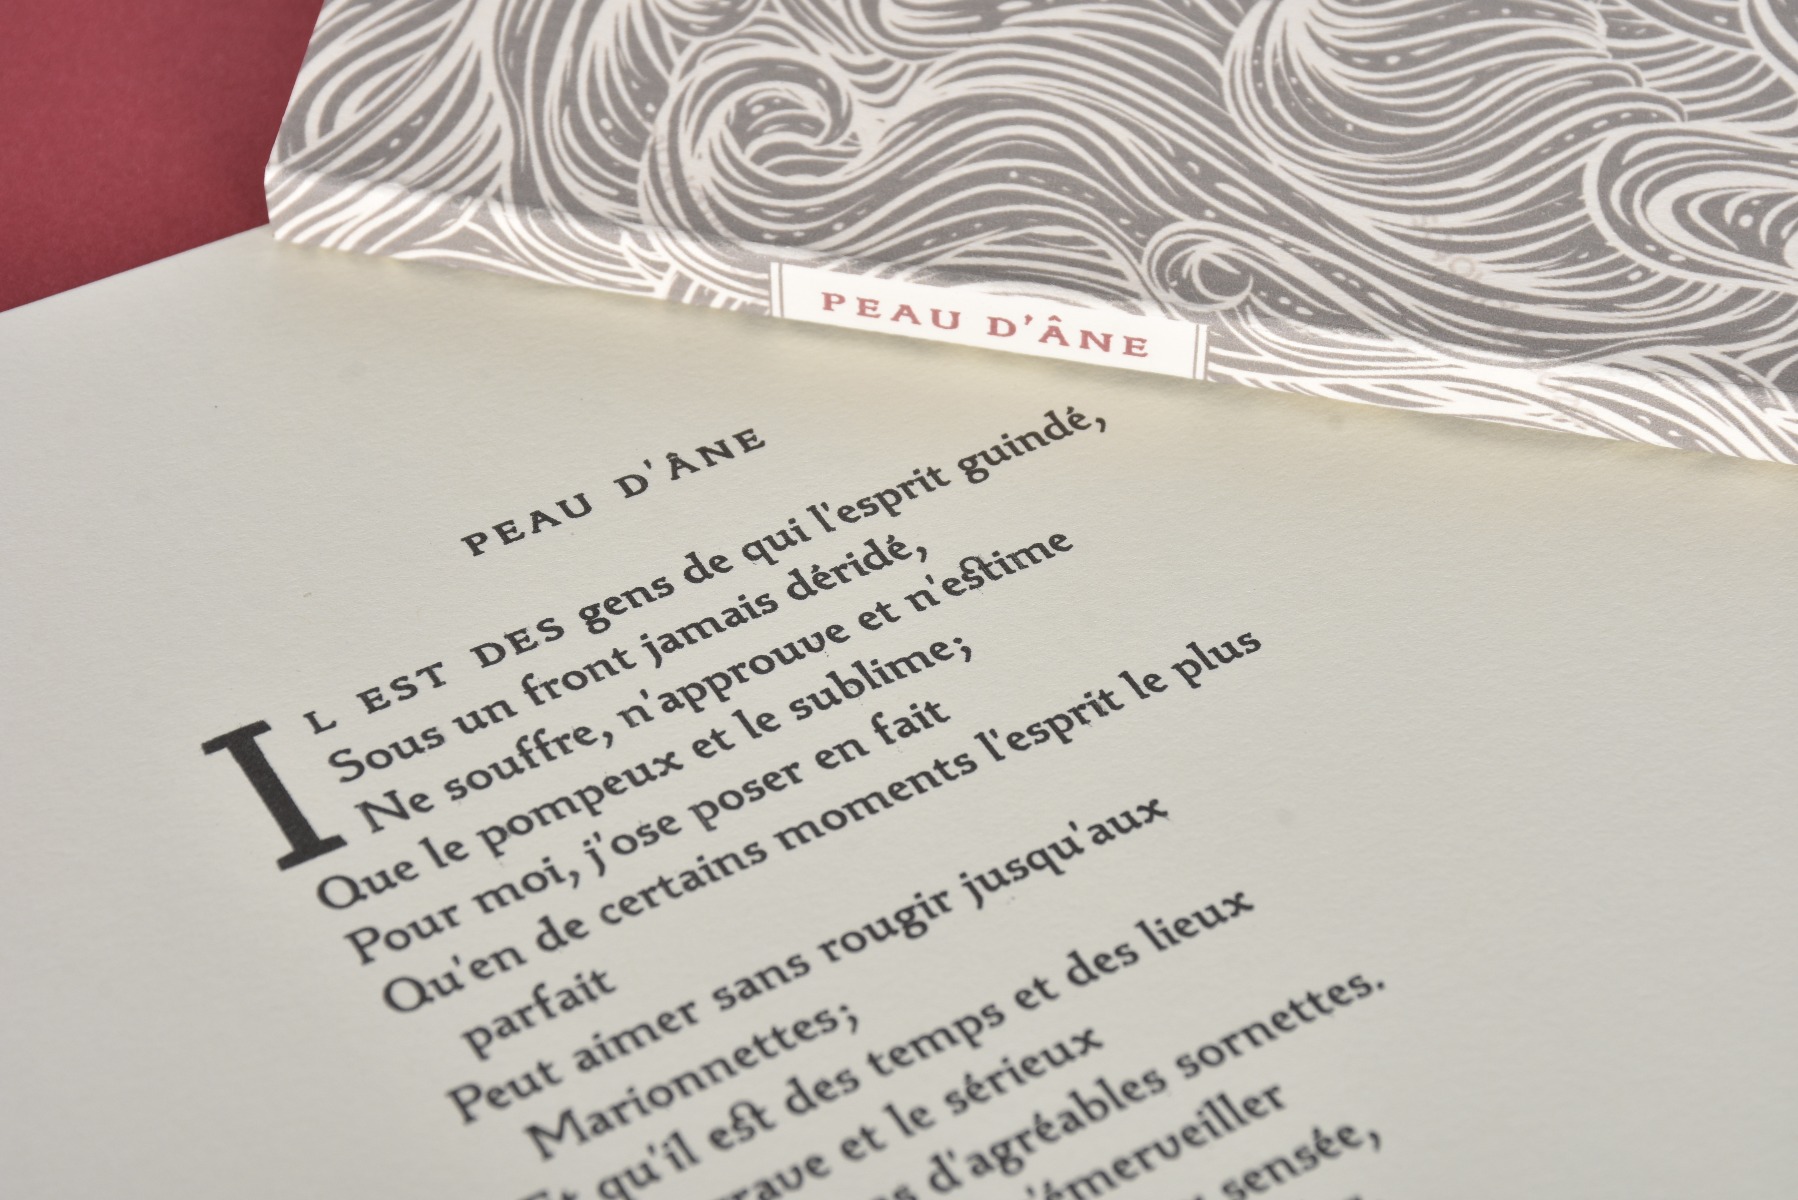 PEAU D'ÂNE
PEAU D'ÂNE
IL EST DES gens de qui l'esprit guindé,
Sous un front jamais déridé,
Ne souffre, n'approuve et n'estime
Que le pompeux et le sublime;
Pour moi, j'ose poser en fait
Qu'en de certains moments l'esprit le plus
parfait
Peut aimer sans rougir jusqu'aux
Marionnettes;
Et qu'il est des temps et des lieux
et le sérieux
d'agréables sornettes.
sensée,